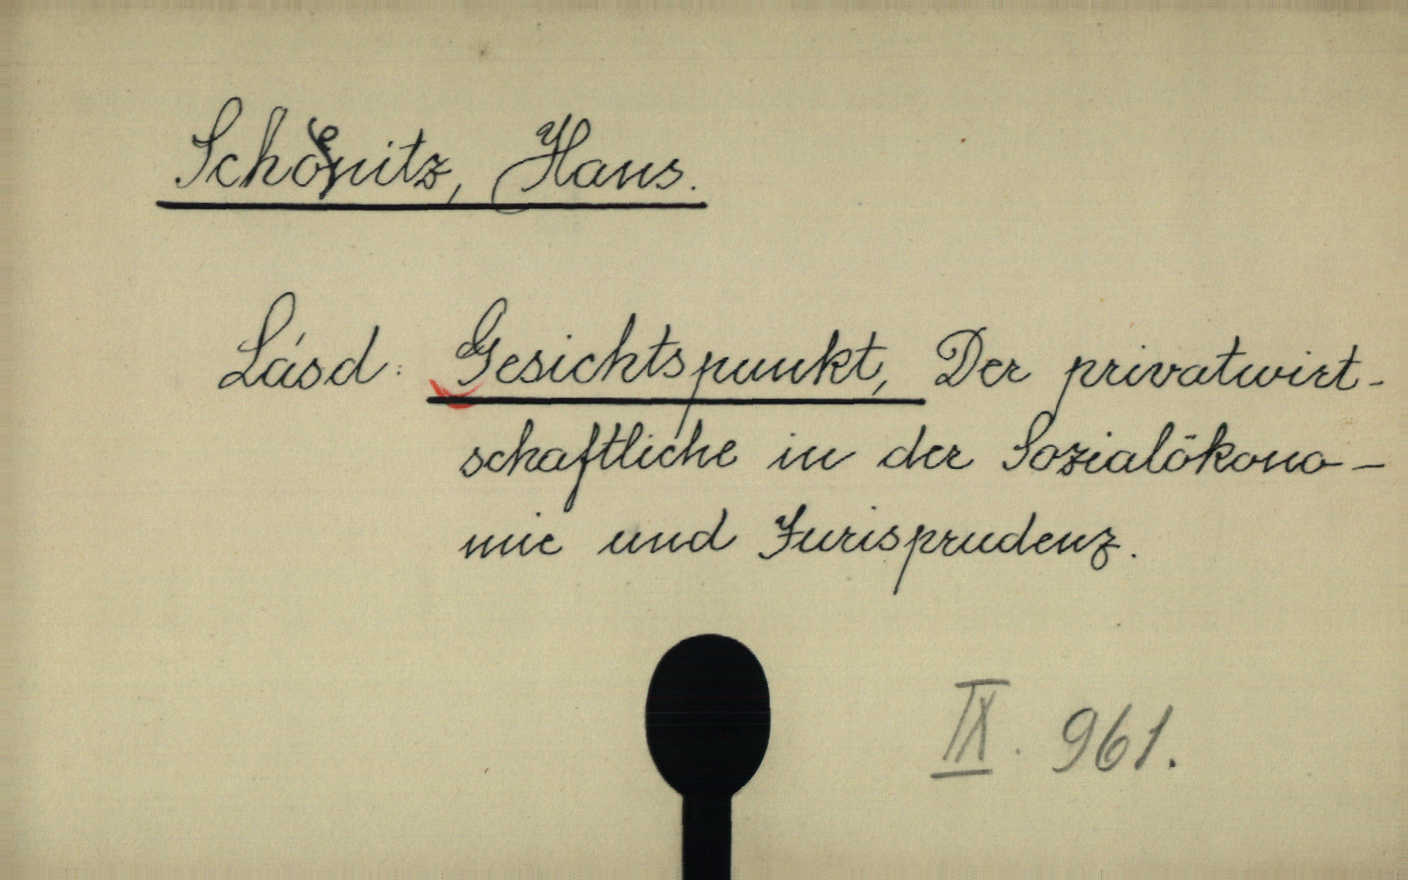 Schönitz, Hans.
Lásd: Gesichtspunkt, Der privatwirt-
schaftliche in der Sozialökono-
mie und Jurisprudenz.
IX. 961.